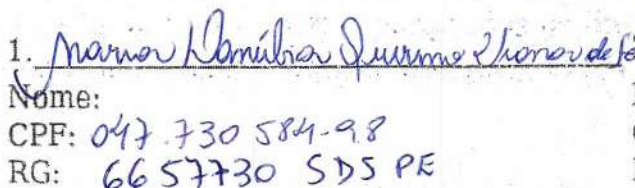 1. Maria Danúbia Quirino Viana de Sá
Nome:
CPF: 047.730 584-98
RG: 6657730 SDS PE